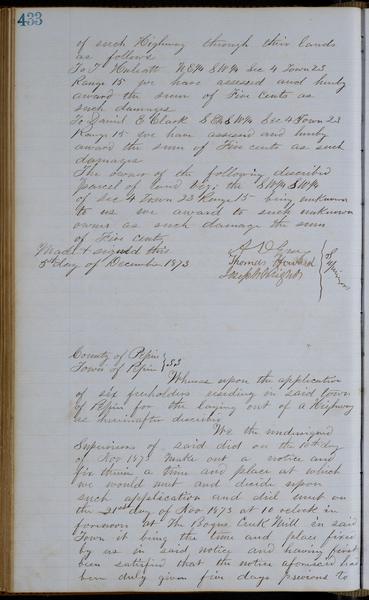 433
of such Highway through their lands
as follows
To T Hulcott N.E¼ S.W¼ Sec 4 Town 23
Range 15 we have assessed and hereby
award the sum of Five Cents as
such damages
To Daniel C Clark S.E¼ S W¼ Sec 4 Town 23
Range 15 we have assessed and hereby
award the sum of Five cents as such
damages
The owner of the following described
parcel of land viz; the S W¼ S W¼
of Sec 4 Town 23 Range 15 being unknown
to us we award to such unknown
owner as such damage the sum
of Five cents
Made & signed this
5th day of December 1873
A D Gray
Thomas Howard
Joseph Wright
Supervisors
County of Pepin
Town of Pepin } SS
Whereas upon the application
of six freeholders residing in said town
of Pepin for the laying out of a Highway
as hereinafter described
We the undersigned
Supervisors of said did on the 10th day
of Nov 1873 make out a notice and
fix therein a time and place at which
we would meet and decide upon
such application and did meet on
the 21st day of Nov 1873 at 10 oclock in
forenoon at The Bogus Creek Mill in said
Town it being the time and place fixed
by us in said notice and having first
been satisfied that the notice aforesaid has
been duly given five days previous to